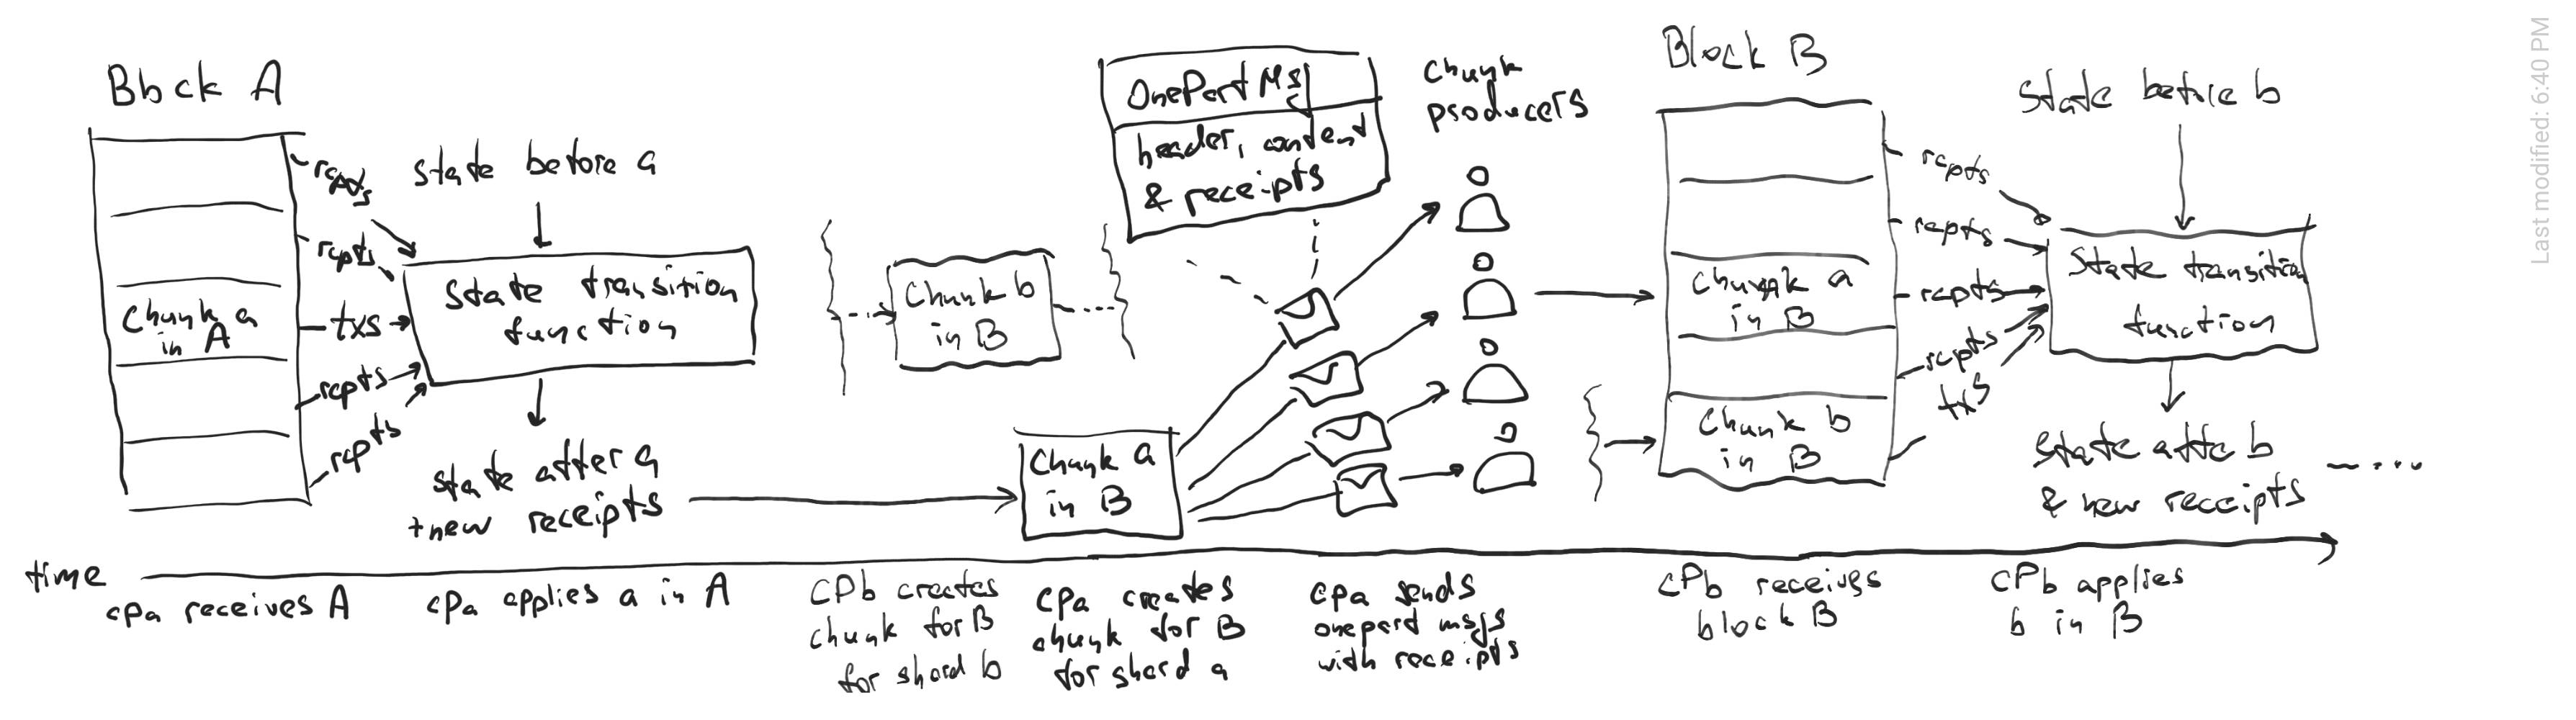 Block A
rcpts
rcpts
Chunk a
in A
txs
rcpts
rcpts
state before a
State transition
function
state after a
+new receipts
Chunk b
in B
OnePart Msg
header, content
& receipts
Chunk
producers
Chunk a
in B
Block B
Chunk a
in B
Chunk b
in B
rcpts
rcpts
rcpts
rcpts
txs
State before b
State transition
function
State afte b
& new receipts
time
cpa receives A
cpa applies a in A
CPb creates
chunk for B
for shard b
cpa creates
chunk for B
for shard a
cpa sends
onepart msgs
with receipts
cPb receives
block B
cPb applies
b in B
Last modified: 6:40 PM